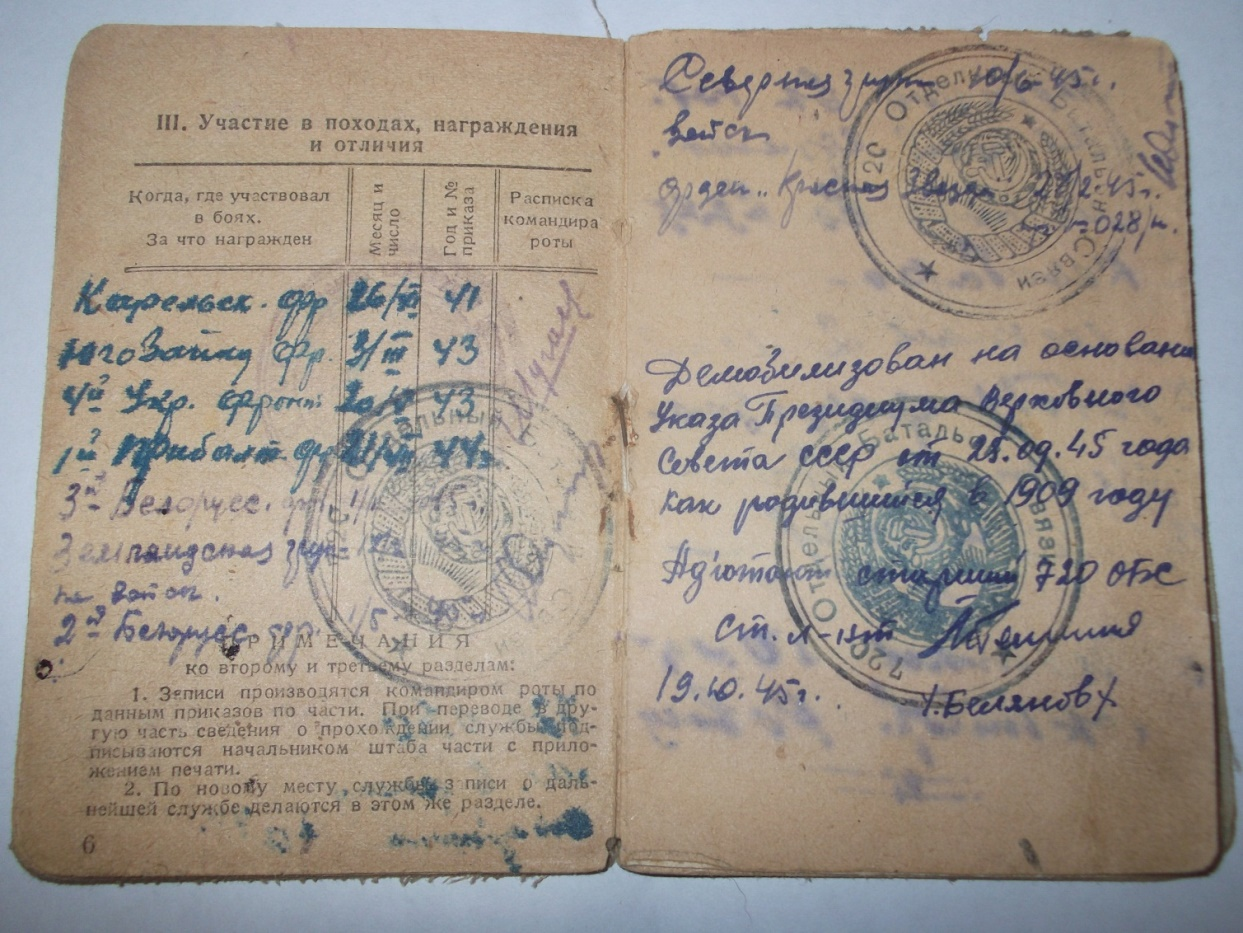 III. Участие в походах, награждения
и отличия
Когда, где участвовал
в боях.
За что награжден
Месяц и
число
Год и №
приказа
Расписка
командира
роты
Карельск. фр 26/ 41
Юго Запад фр. 3/III 43
4й Укр. фронт 20/ 43
1й Прибалт фр 21/ 44
3й Белорусс. фр.
Земландская
войск.
2й Белорусс фр. 1/5
ПРИМЕЧАНИЯ
ко второму и третьему разделам:
1. Записи производятся командиром роты по
данным приказов по части. При переводе в дру-
гую часть сведения о прохождении службы под-
писываются начальником штаба части с прило-
жением печати.
2. По новому месту службы записи о даль-
нейшей службе делаются в этом же разделе.
6
Северная 10/6-45г.
войск
орден „Красная Звезда 2-45г.
028/н.
720 Отдельный Батальон Связи
Демобилизован на основани
Указа Президиума Верховного
Совета СССР от 25.09.45 года
как родившийся в 1909 году
Адъютант старший 720 ОБС
ст. л-нт
19.10.45г. Беляков
720 Отдельный Батальон Связи